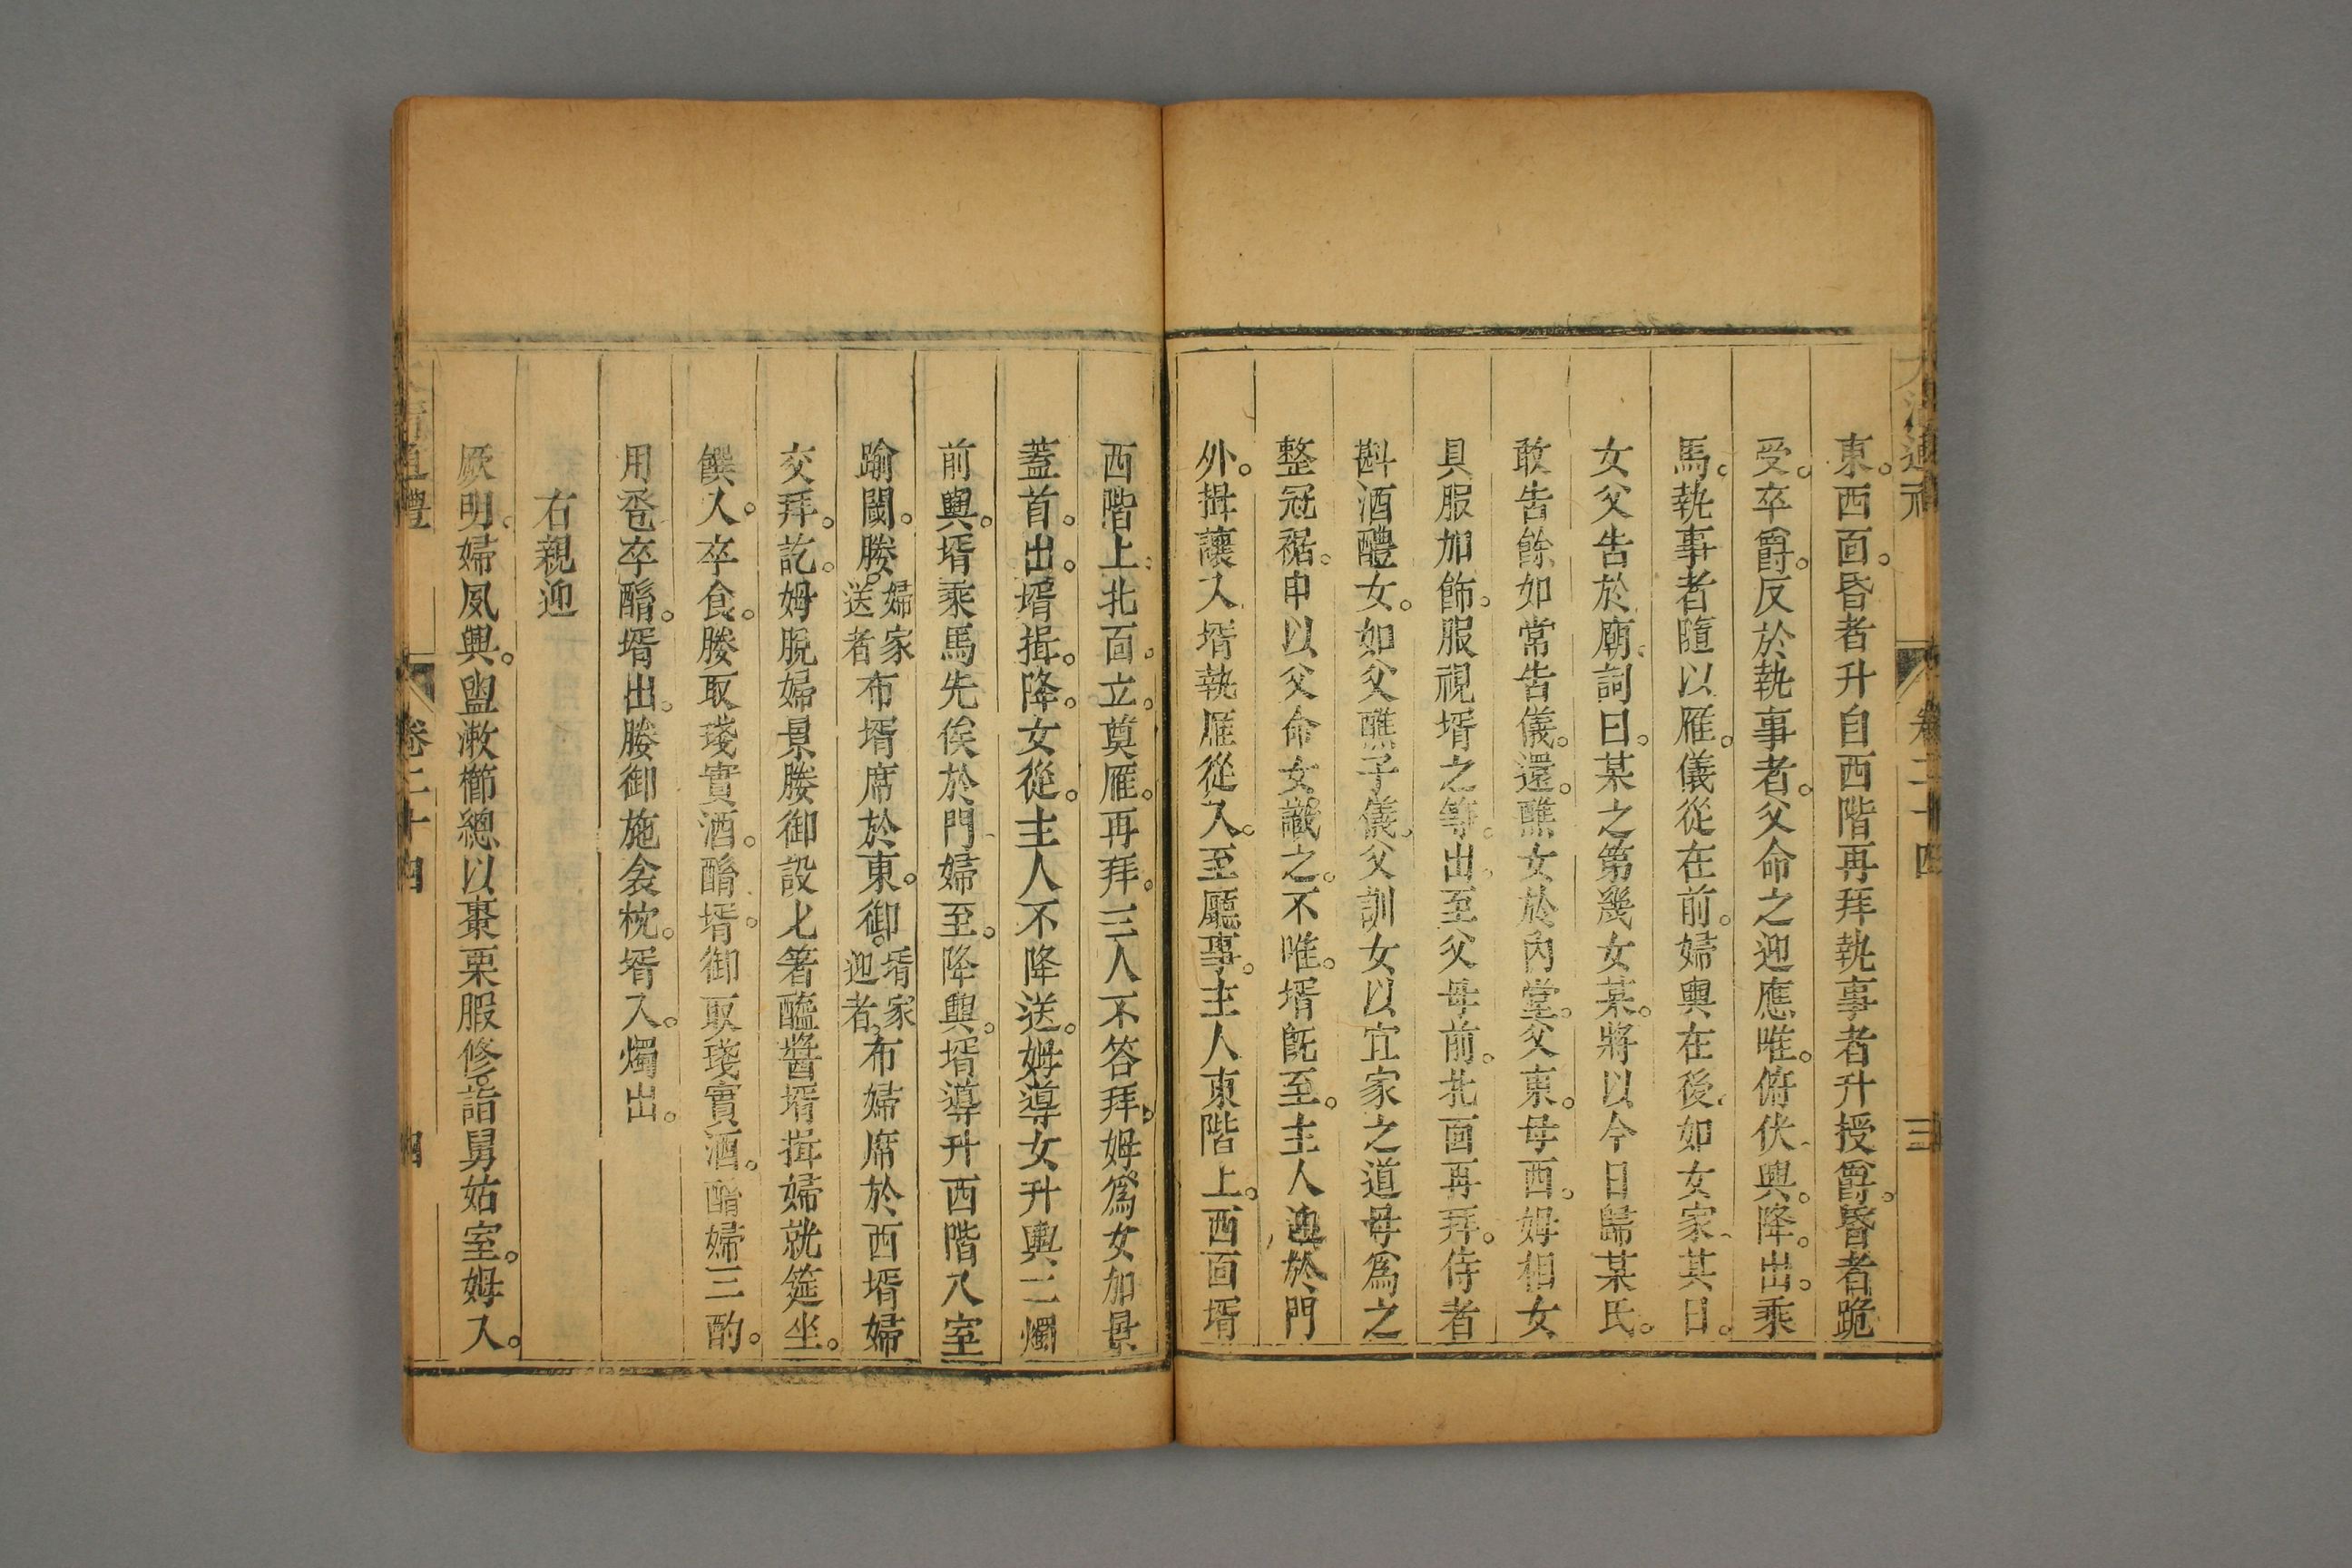 大清通禮 卷二十四 三
東。西面。昏者升自西階再拜執事者升授爵。昏者跪
受。卒爵。反於執事者。父命之迎應唯。俯伏、興。降。出。乘
馬。執事者隨以雁。儀從在前。婦輿在後。如女家、其日。
女父告於廟。詞曰。某之第幾女某。將以今日歸某氏。
敢告餘如常告儀。還。醮女於內堂。父東。母西。姆相女
具服加飾。服視壻之等。出至父母前。北面再拜。侍者
斟酒醴女。如父醮子儀。父訓女以宜家之道母爲之
整冠裾。申以父命女識之。不唯。壻既至。主人迎於門
外。揖讓入壻執雁從入。至廳事。主人東階上。西面壻
西階上。北面。立。奠雁。再拜。主人不答拜。姆。爲女加景
蓋首。出。壻揖。降。女從。主人不降送。姆導女升輿二燭
前輿。壻乘馬先俟於門、婦至。降輿。壻導升西階入室
踰閾。媵。婦家送者布壻席於東。御。壻家迎者。布婦席於西壻婦
交拜。訖。姆脫婦景媵御設匕箸醢醬壻揖婦就筵坐。
饌入。卒食。媵取琖實酒。酳壻。御取琖實酒。酳婦三酌。
用卺卒酳。壻出。媵御施衾枕。壻入。燭出。
右親迎
厥明。婦夙興。盥漱櫛總以棗栗服修。詣舅姑室。姆入。
大清通禮 卷二十四 四